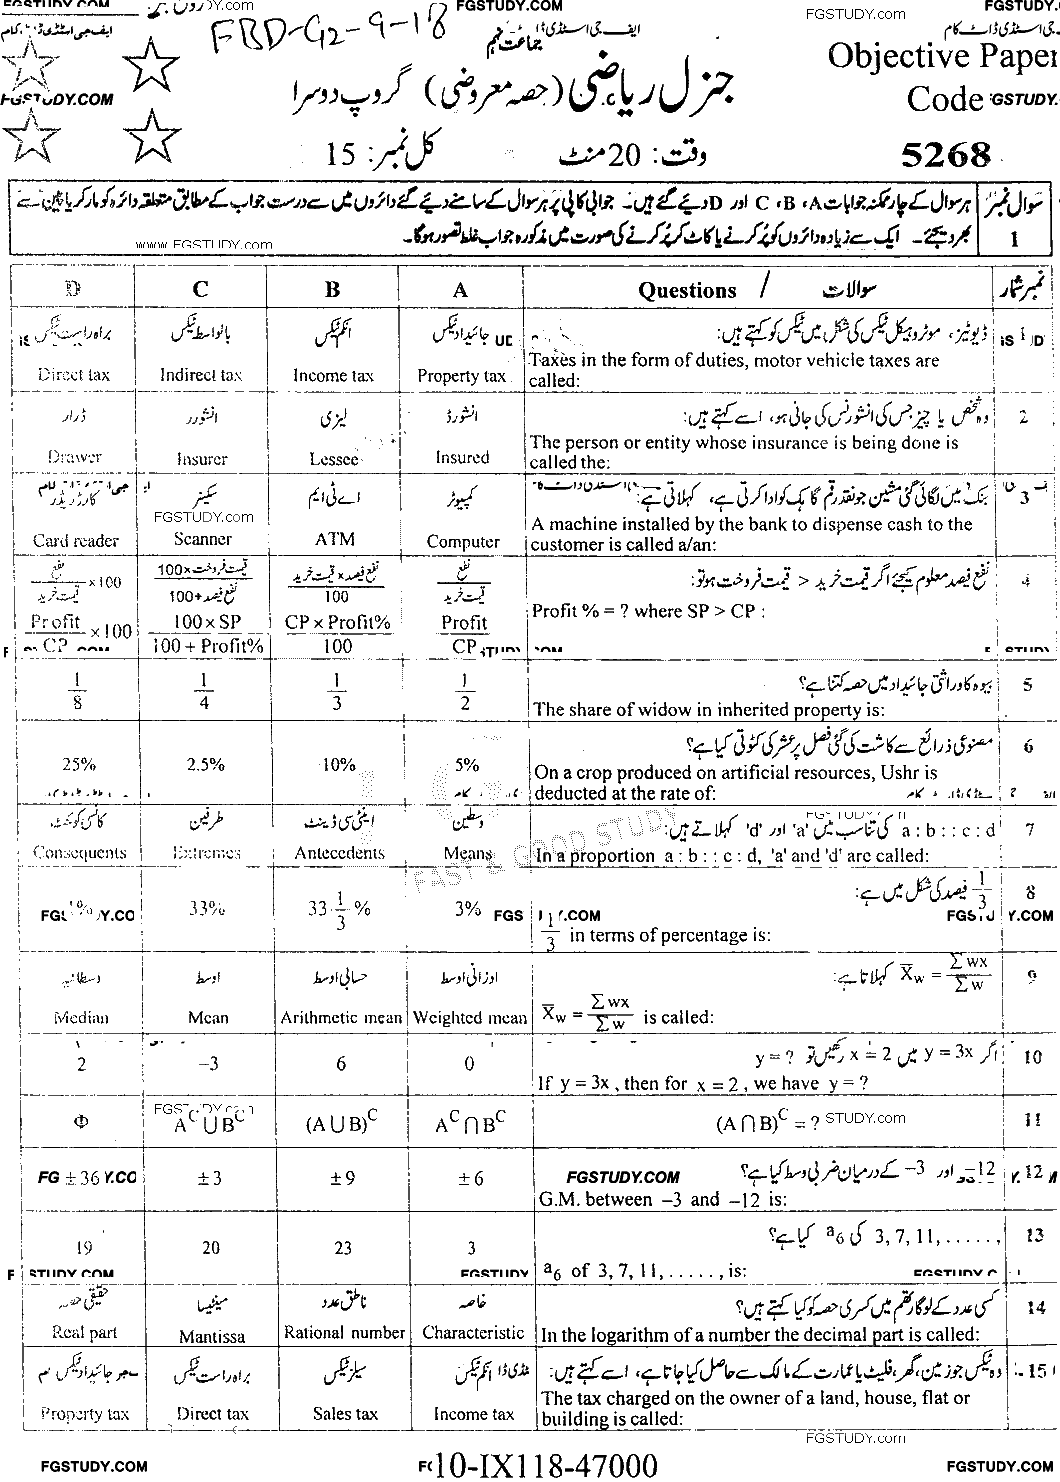 FGSTUDY.COM
FBD-G2-9-18
جماعت نہم
ایف جی اسٹڈی ڈاٹ کام
FGSTUDY.COM
FGSTUDY.com
FGSTUDY.COM
Objective Paper
Code
5268
جنرل ریاضی (حصہ معروضی) گروپ دوسرا
وقت: 20 منٹ
کل نمبر: 15
سوال نمبر 1
ہر سوال کے چار ممکنہ جوابات A، B، C اور D دیئے گئے ہیں۔ جوابی کاپی پر ہر سوال کے سامنے دیئے گئے دائروں میں سے درست جواب کے مطابق متعلقہ دائرہ کو مارکر یا پین سے
بھر دیجئے۔ ایک سے زیادہ دائروں کو پُر کرنے یا کاٹ کر پُر کرنے کی صورت میں مذکورہ جواب غلط تصور ہوگا۔
www.FGSTUDY.com
D C B A Questions / سوالات نمبر شمار
براہ راست ٹیکس بالواسطہ ٹیکس انکم ٹیکس جائیداد ٹیکس ڈیوٹیز، موٹر وہیکل ٹیکس کی شکل میں ٹیکس کو کہتے ہیں: 1
Direct tax Indirect tax Income tax Property tax Taxes in the form of duties, motor vehicle taxes are
called:
ڈرار انشورر لیزی انشورڈ وہ شخص یا چیز جس کی انشورنس کی جانی ہو، اسے کہتے ہیں: 2
Drawer Insurer Lessee Insured The person or entity whose insurance is being done is
called the:
کارڈ ریڈر سکینر اے ٹی ایم کمپیوٹر بنک میں لگائی گئی مشین جو نقد رقم گاہک کو ادا کرتی ہے، کہلاتی ہے: 3
FGSTUDY.com
Card reader Scanner ATM Computer A machine installed by the bank to dispense cash to the
customer is called a/an:
نفع/قیمت خرید ×100 قیمت فروخت×100/نفع فیصد+100 نفع فیصد×قیمت خرید/100 نفع/قیمت خرید نفع فیصد معلوم کیجئے اگر قیمت خرید < قیمت فروخت ہو تو: 4
Profit/CP ×100 100×SP/100+Profit% CP×Profit%/100 Profit/CP Profit % = ? where SP > CP :
1/8 1/4 1/3 1/2 بیوہ کا وراثتی جائیداد میں حصہ کتنا ہے؟ 5
The share of widow in inherited property is:
مصنوعی ذرائع سے کاشت کی گئی فصل پر عشر کی کٹوتی کیا ہے؟ 6
25% 2.5% 10% 5% On a crop produced on artificial resources, Ushr is
deducted at the rate of:
طرفین وسطین a : b : : c : d کی تناسب میں 'a' اور 'd' کہلاتے ہیں: 7
Consequents Extremes Antecedents Means In a proportion a : b : : c : d, 'a' and 'd' are called:
FAST & GOOD STUDY
1/3 فیصد کی شکل میں ہے: 8
33% 33 1/3 % 3% 1/3 in terms of percentage is:
وسطانیہ اوسط حسابی اوسط اوزانی اوسط X̄w = ∑wx/∑w کہلاتا ہے: 9
Median Mean Arithmetic mean Weighted mean X̄w = ∑wx/∑w is called:
اگر y = 3x میں x = 2 رکھیں تو y = ? 10
2 –3 6 0 If y = 3x , then for x = 2 , we have y = ?
FGSTUDY.com
Φ Aᶜ∪Bᶜ (A∪B)ᶜ Aᶜ∩Bᶜ (A∩B)ᶜ = ? STUDY.com 11
±36 ±3 ±9 ±6 FGSTUDY.COM –3 اور –12 کے درمیان ضربی وسط کیا ہے؟ 12
G.M. between –3 and –12 is:
3, 7, 11, . . . . . , کی a6 کیا ہے؟ 13
19 20 23 3 a6 of 3, 7, 11, . . . . . , is:
حقیقی حصہ مینٹیسا ناطق عدد خاصہ کسی عدد کے لوگارتھم میں کسری حصہ کو کیا کہتے ہیں؟ 14
Real part Mantissa Rational number Characteristic In the logarithm of a number the decimal part is called:
جائیداد ٹیکس براہ راست ٹیکس سیلز ٹیکس انکم ٹیکس وہ ٹیکس جو زمین، گھر، فلیٹ یا عمارت کے مالک سے حاصل کیا جاتا ہے، اسے کہتے ہیں: 15
Property tax Direct tax Sales tax Income tax The tax charged on the owner of a land, house, flat or
building is called:
FGSTUDY.com
FGSTUDY.COM 10-IX118-47000 FGSTUDY.COM